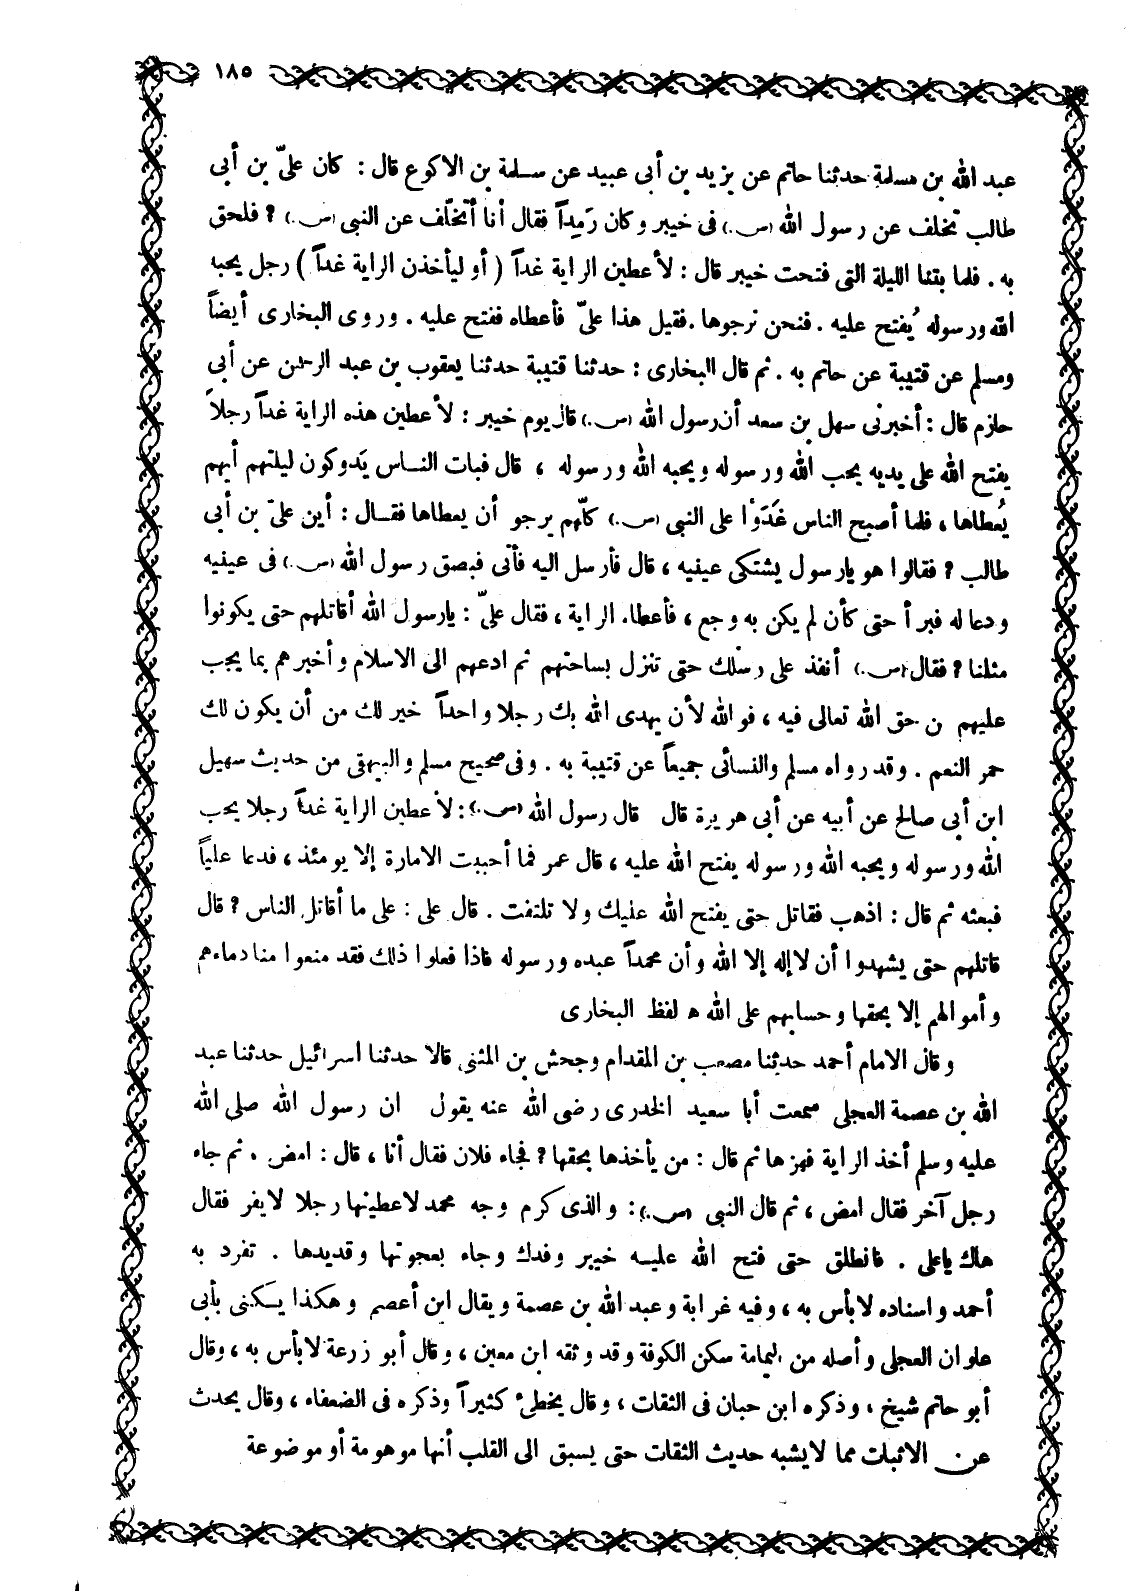 ١٨٥
عبد الله بن مسلمة حدثنا حاتم عن يزيد بن أبى عبيد عن سلمة بن الاكوع قال : كان علىّ بن أبى
طالب تخلف عن رسول الله (س.) فى خيبر وكان رَمِداً فقال أنا أتخلّف عن النبى (س.) ? فلحق
به . فلما بتنا الليلة التى فتحت خيبر قال : لأعطين الراية غداً ( أو ليأخذن الراية غداً ) رجل يحبه
الله ورسوله يُفتح عليه . فنحن نرجوها . فقيل هذا علىّ فأعطاه ففتح عليه . وروى البخارى أيضاً
ومسلم عن قتيبة عن حاتم به . ثم قال البخارى : حدثنا قتيبة حدثنا يعقوب بن عبد الرحمن عن أبى
حازم قال : أخبرنى سهل بن سعد أن رسول الله (س.) قال يوم خيبر : لأعطين هذه الراية غداً رجلاً
يفتح الله على يديه يحب الله ورسوله ويحبه الله ورسوله ، قال فبات الناس يَدوكون ليلتهم أيهم
يُعطاها ، فلما أصبح الناس غَدَوْا على النبى (س.) كلّهم يرجو أن يعطاها فقال : أين علىّ بن أبى
طالب ? فقالوا هو يارسول يشتكى عينيه ، قال فأرسل اليه فأتى فبصق رسول الله (س.) فى عينيه
ودعا له فبرأ حتى كأن لم يكن به وجع ، فأعطاه الراية ، فقال علىّ : يارسول الله أقاتلهم حتى يكونوا
مثلنا ? فقال (س.) أنفذ على رسْلك حتى تنزل بساحتهم ثم ادعهم الى الاسلام وأخبرهم بما يجب
عليهم ن حق الله تعالى فيه ، فوالله لأن يهدى الله بك رجلا واحداً خير لك من أن يكون لك
حمر النعم . وقد رواه مسلم والنسائى جميعاً عن قتيبة به . وفى صحيح مسلم والبيهقى من حديث سهيل
ابن أبى صالح عن أبيه عن أبى هريرة قال قال رسول الله (س.) : لأعطين الراية غداً رجلا يحب
الله ورسوله ويحبه الله ورسوله يفتح الله عليه ، قال عمر فما أحببت الامارة إلا يومئذ ، فدعا علياً
فبعثه ثم قال : اذهب فقاتل حتى يفتح الله عليك ولا تلتفت . قال على : على ما أقاتل الناس ? قال
قاتلهم حتى يشهدوا أن لاإله إلا الله وأن محمداً عبده ورسوله فاذا فعلوا ذلك فقد منعوا منا دماءهم
وأموالهم إلا بحقها وحسابهم على الله ه لفظ البخارى
وقال الامام أحمد حدثنا مصعب بن المقدام وجحش بن المثنى قالا حدثنا اسرائيل حدثنا عبد
الله بن عصمة العجلى سمعت أبا سعيد الخدرى رضى الله عنه يقول ان رسول الله صلى الله
عليه وسلم أخذ الراية فهزها ثم قال : من يأخذها بحقها ? فجاء فلان فقال أنا ، قال : امض . ثم جاء
رجل آخر فقال امض ، ثم قال النبى (س.) : والذى كرم وجه محمد لاعطينها رجلا لايفر فقال
هاك ياعلى . فانطلق حتى فتح الله عليه خيبر وفدك وجاء بعجوتها وقديدها . تفرد به
أحمد واسناده لابأس به ، وفيه غرابة وعبد الله بن عصمة ويقال ابن أعصم وهكذا يكنى بأبى
علوان العجلى وأصله من اليمامة سكن الكوفة وقد وثقه ابن معين ، وقال أبو زرعة لابأس به ، وقال
أبو حاتم شيخ ، وذكره ابن حبان فى الثقات ، وقال يخطئ كثيراً وذكره فى الضعفاء ، وقال يحدث
عن الاثبات مما لايشبه حديث الثقات حتى يسبق الى القلب أنها موهومة أو موضوعة